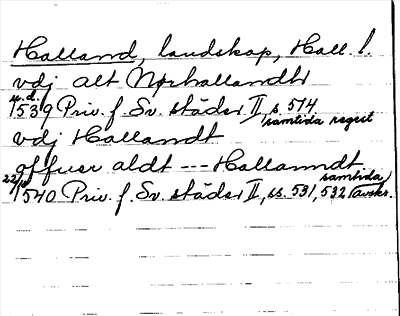 Halland, landskap, Hall. l.
vdj alt Nørhallandh
u.d. 1539 Priv. f. Sv. städer II, s. 514 samtida regist
vdj Hallandt
offuer aldt --- Hallanndt
1540 Priv. f. Sv. städer II, ss. 531, 532 samtida avskr.